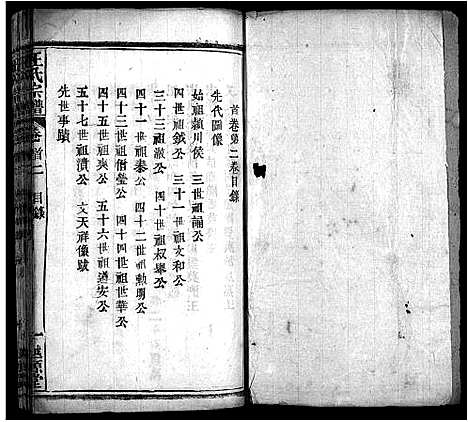 首卷第二卷目錄
先代圖像
始祖穎川侯 三世祖誦公
四世祖鉞公 三十一世祖文和公
三十三祖濊公 四十世祖叔舉公
四十一世祖秦公 四十二世祖勲明公
四十三世祖僧瑩公 四十四世祖世華公
四十五世祖爽公 五十六世祖遵安公
五十七世祖漬公 文天祥像跋
先世事蹟
汪氏宗譜 卷首二 目錄 一